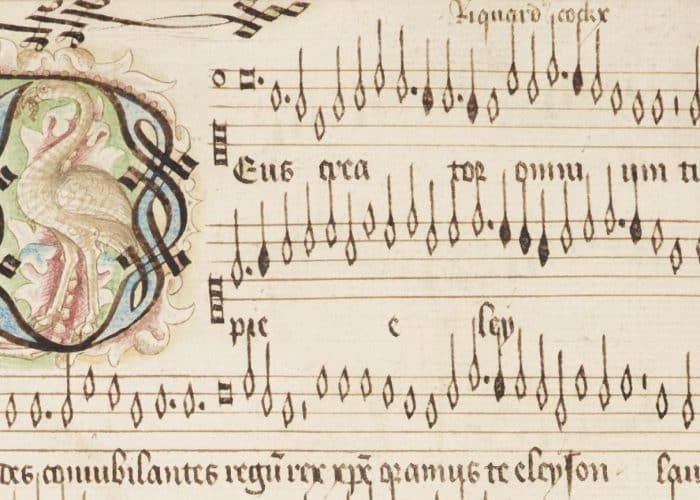 Riquard cockx
Eus crea tor omni um ti
pie e ley
des coniubilantes regū rex xp̄e oramus te eleyson lau